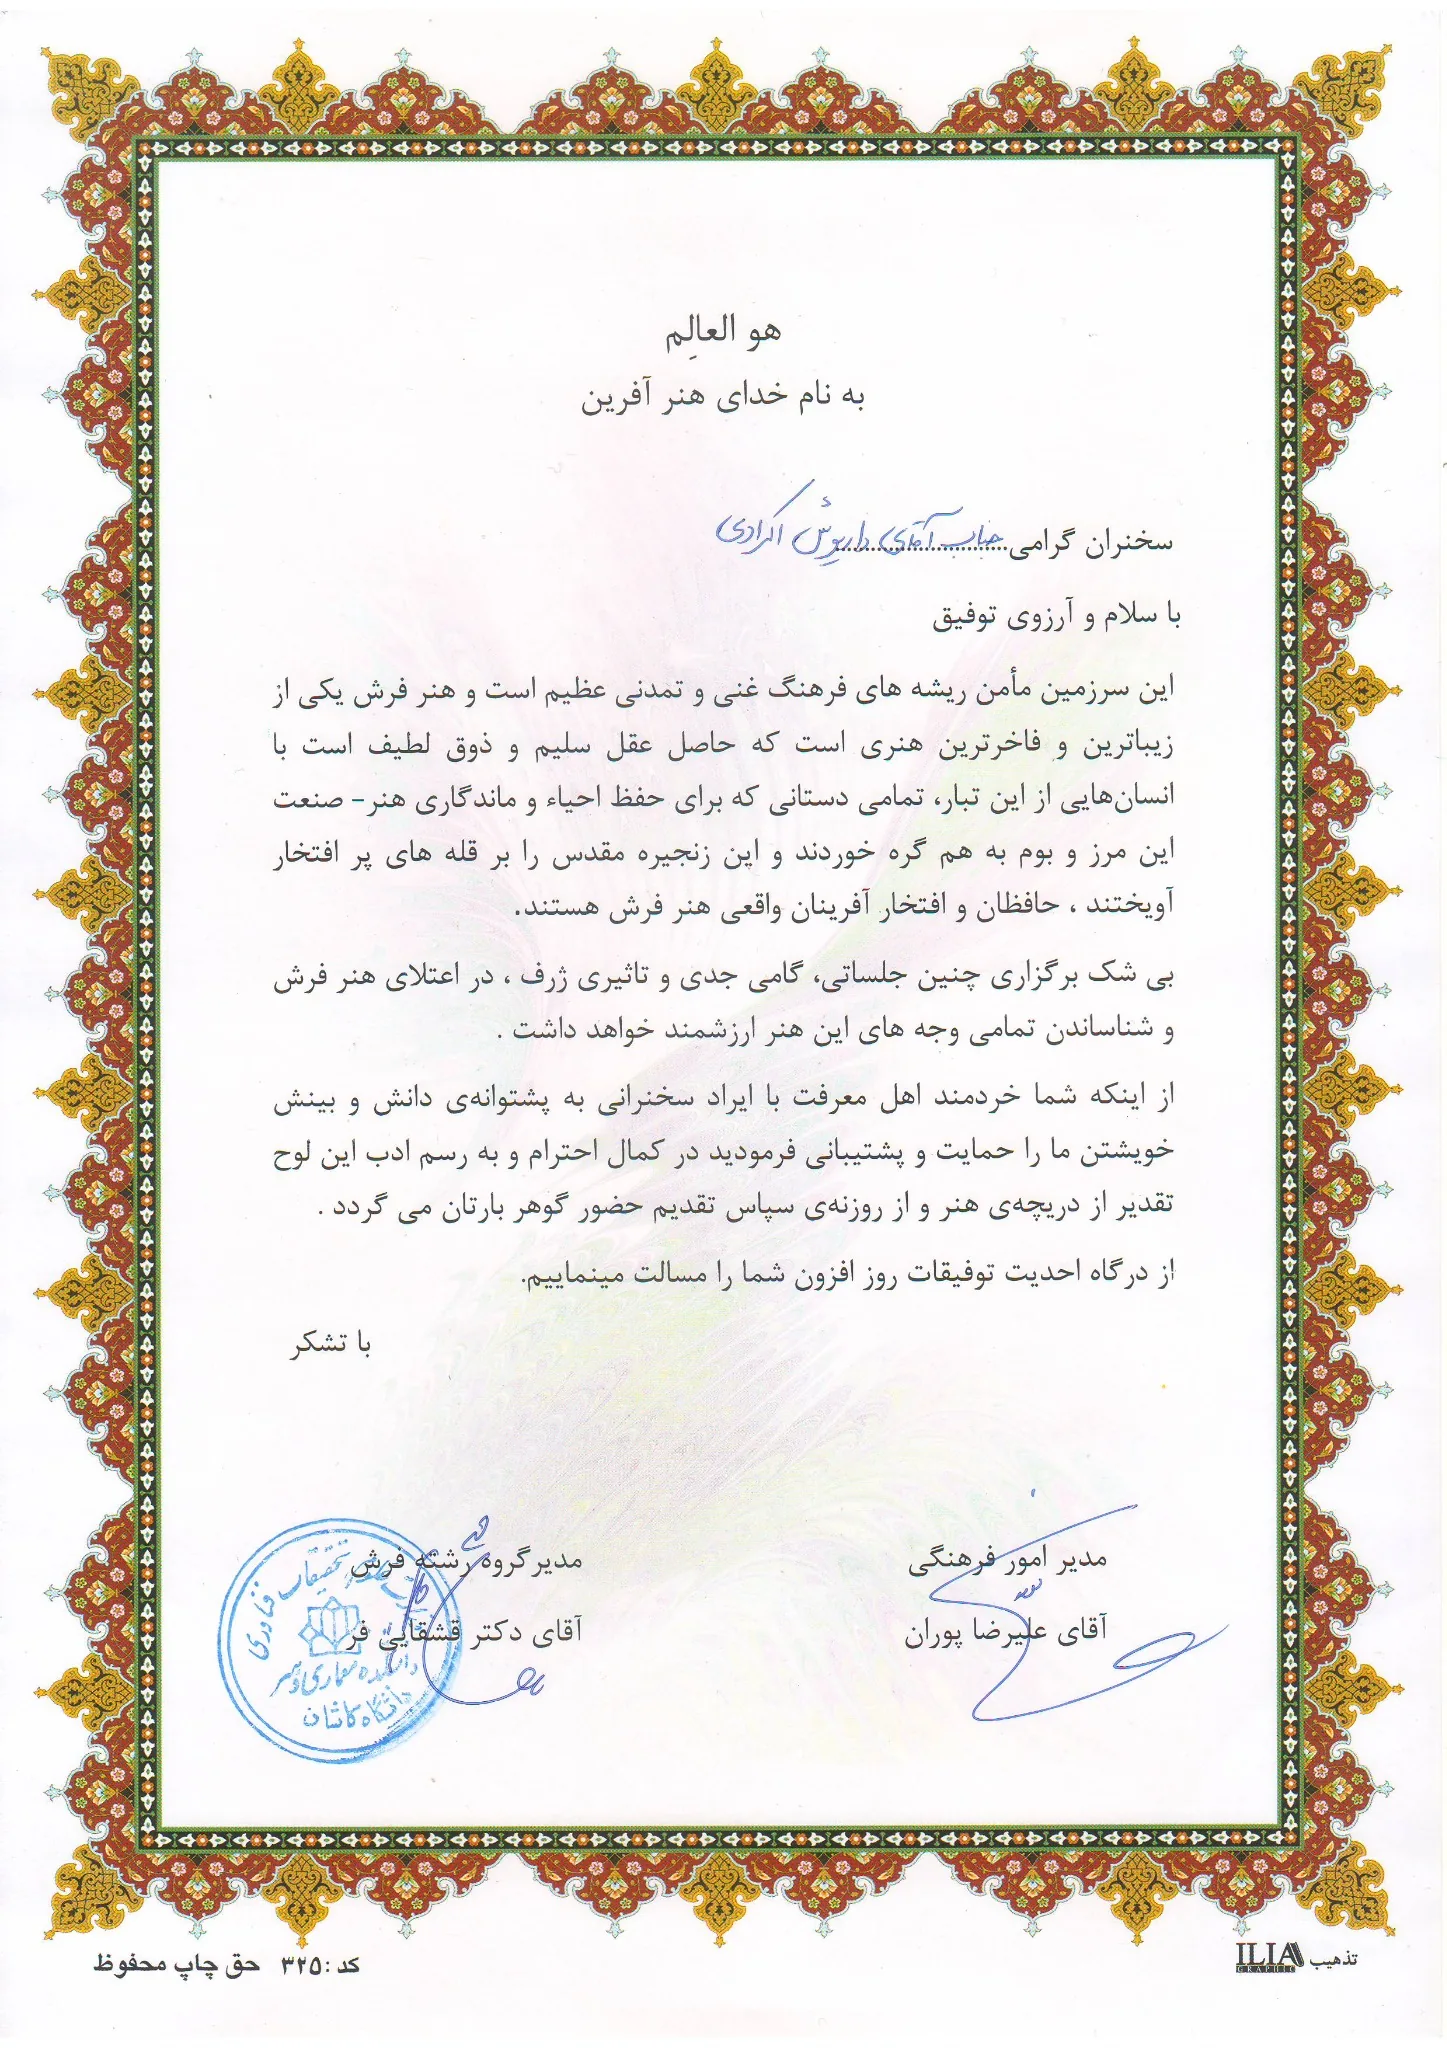 هو العالِم
به نام خدای هنر آفرین
سخنران گرامی جناب آقای داریوش اکرادی
با سلام و آرزوی توفیق
این سرزمین مأمن ریشه های فرهنگ غنی و تمدنی عظیم است و هنر فرش یکی از
زیباترین و فاخرترین هنری است که حاصل عقل سلیم و ذوق لطیف است با
انسان‌هایی از این تبار، تمامی دستانی که برای حفظ احیاء و ماندگاری هنر- صنعت
این مرز و بوم به هم گره خوردند و این زنجیره مقدس را بر قله های پر افتخار
آویختند ، حافظان و افتخار آفرینان واقعی هنر فرش هستند.
بی شک برگزاری چنین جلساتی، گامی جدی و تاثیری ژرف ، در اعتلای هنر فرش
و شناساندن تمامی وجه های این هنر ارزشمند خواهد داشت .
از اینکه شما خردمند اهل معرفت با ایراد سخنرانی به پشتوانه‌ی دانش و بینش
خویشتن ما را حمایت و پشتیبانی فرمودید در کمال احترام و به رسم ادب این لوح
تقدیر از دریچه‌ی هنر و از روزنه‌ی سپاس تقدیم حضور گوهر بارتان می گردد .
از درگاه احدیت توفیقات روز افزون شما را مسالت مینماییم.
با تشکر
مدیر امور فرهنگی
آقای علیرضا پوران
مدیرگروه رشته فرش
آقای دکتر قشقایی فر
علوم تحقیقات فناوری
دانشکده معماری و هنر
دانشگاه کاشان
تذهیب ILIA GRAPHIC
کد :۳۲۵ حق چاپ محفوظ